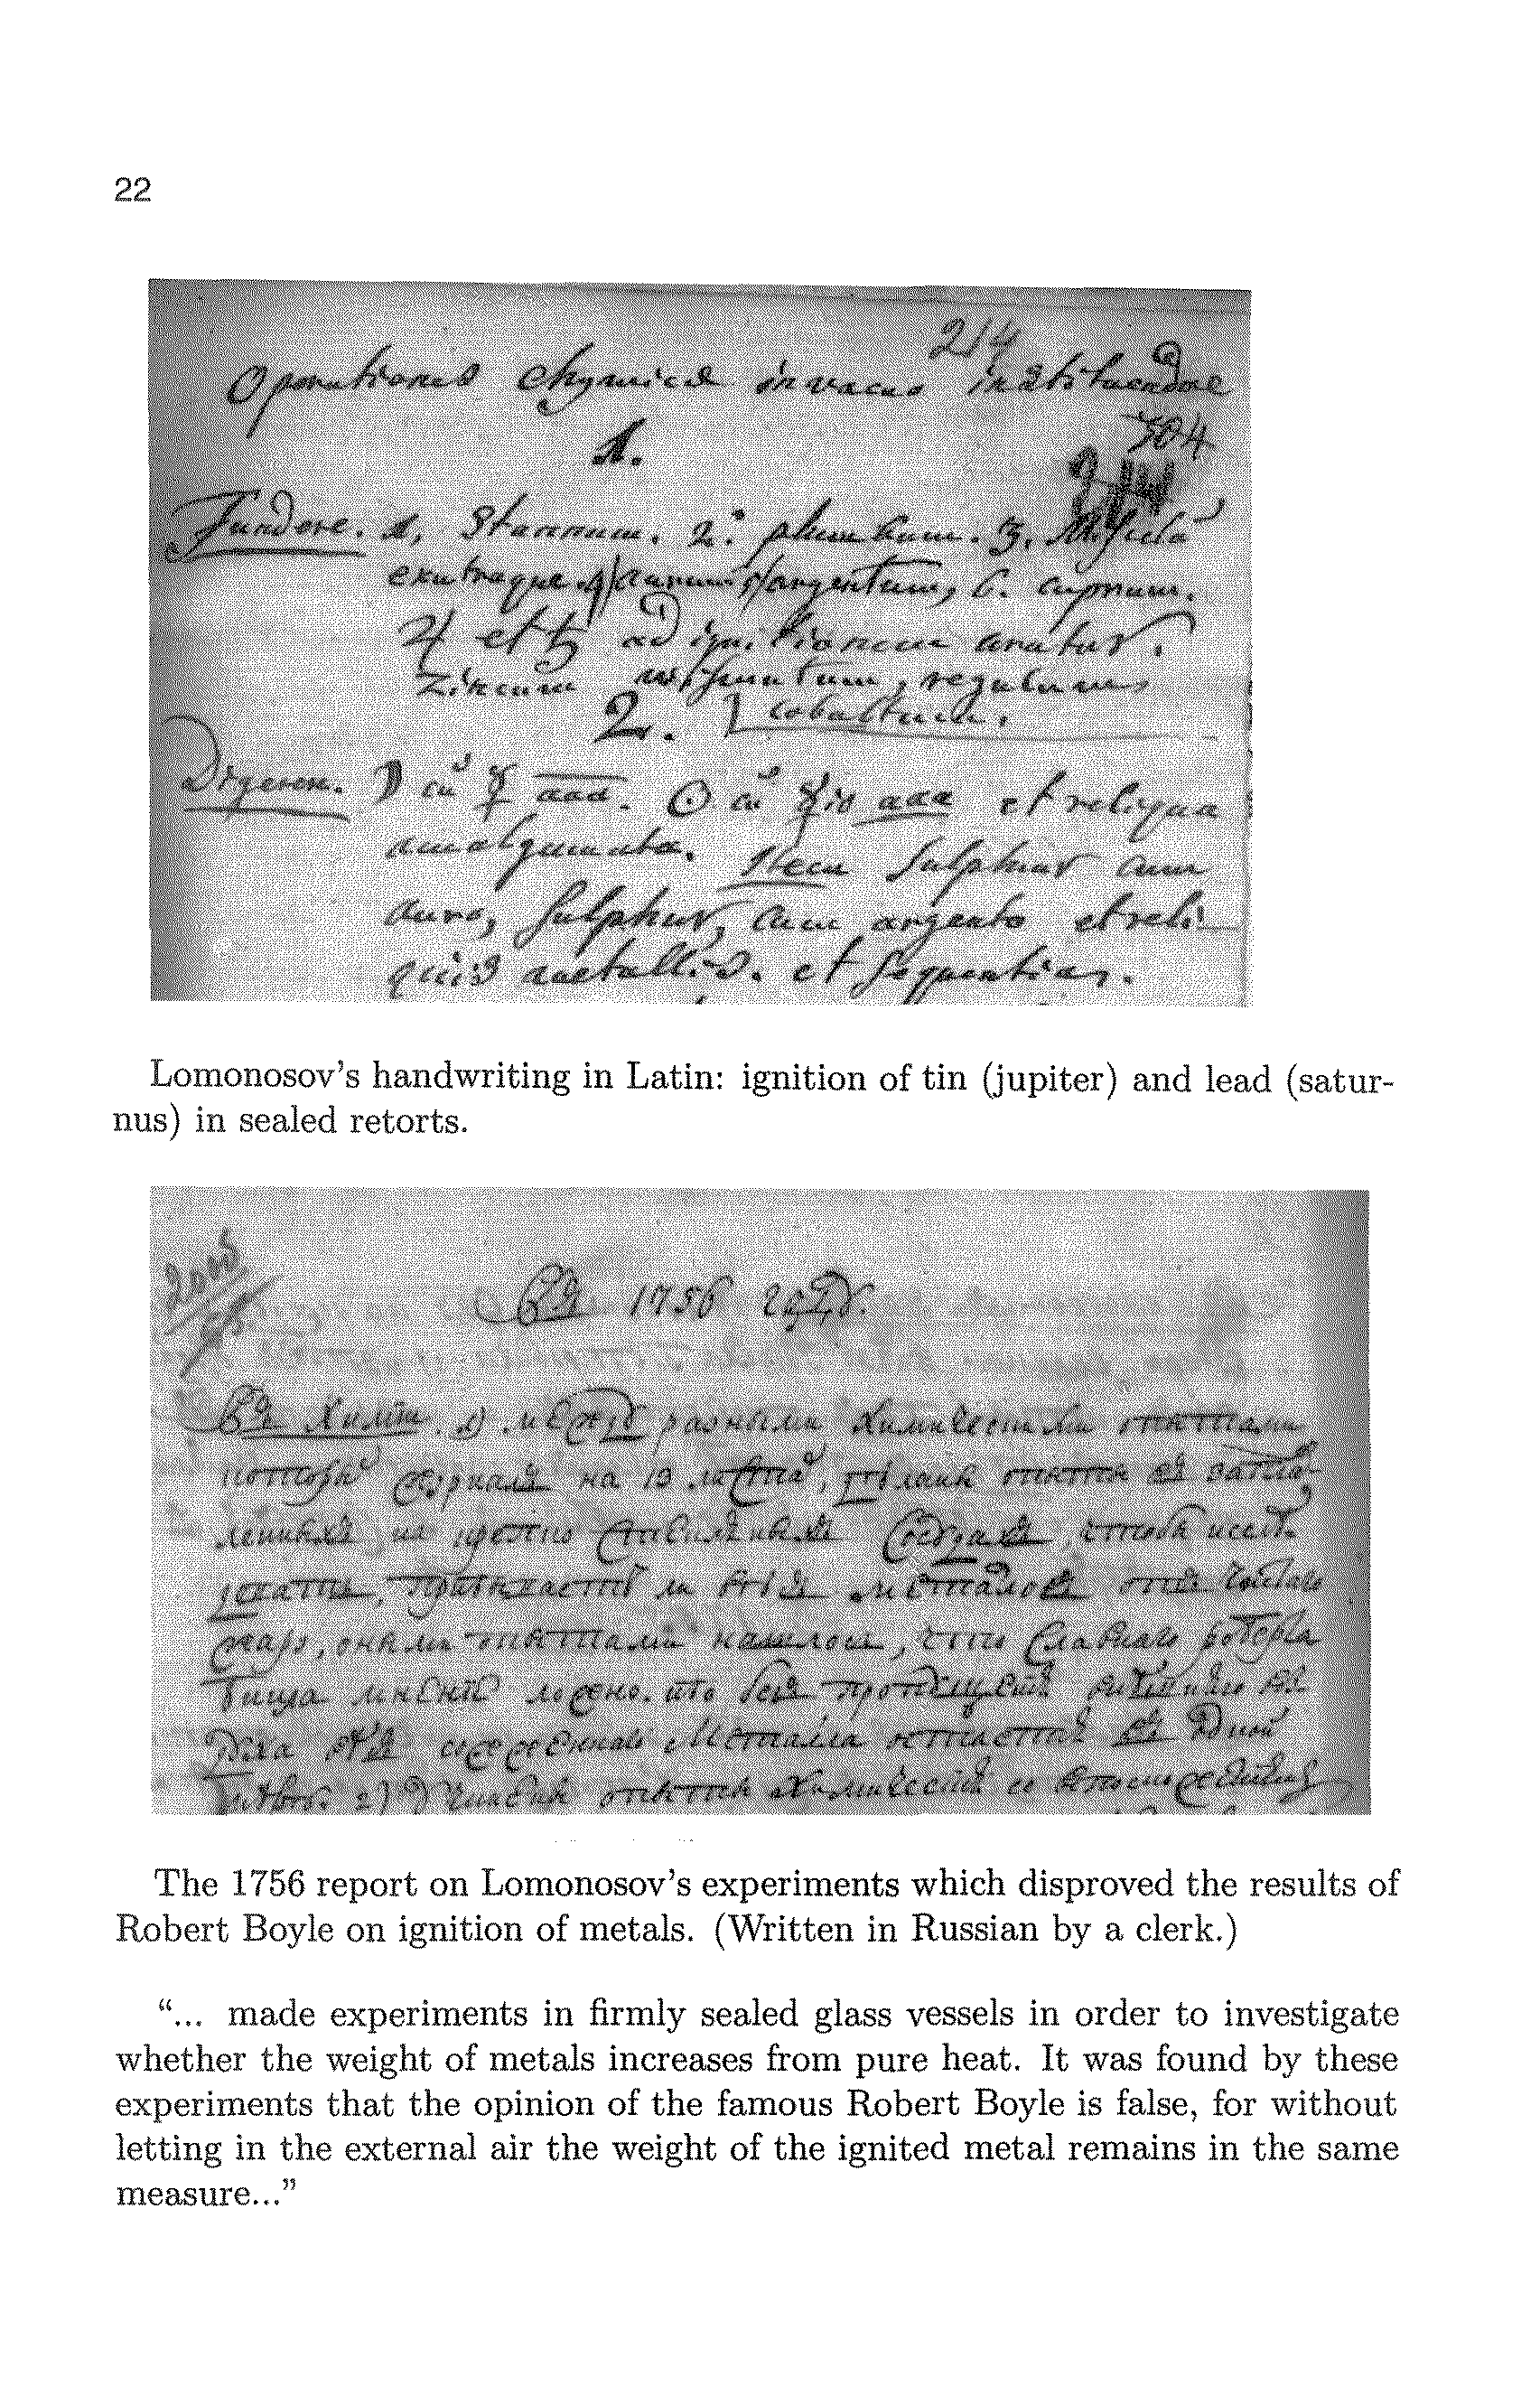 22
214
Operationes chymicae in vacuo instituendae
304
1.
Fundere. 1, Stannum. 2. plumbum. 3. Miscela
exutraque 4 aurum 5 argentum, 6. cuprum.
♃ et ♄ ad ignitionem
Zincum wismutum, regulum
2. cobaltum.
Digerere. ☽ cū ☿ aaa. ☉ cū ☿io aaa et reliqua
amalgamata. Item Sulphur cum
auro, Sulphur, cum argento et reli
quis metallis. et sequentia.
Lomonosov's handwriting in Latin: ignition of tin (jupiter) and lead (satur-
nus) in sealed retorts.
Въ 1756 году.
Въ Химїи. 1) между разными Химическими опытами
которыхъ журналъ на 13 листахъ, дѣланы опыты въ заплав
ленныхъ на крѣпко стеклянныхъ сосудахъ, чтобы изслѣ
довать, прибываетъ ли вѣсъ металловъ отъ чистаго
жару, оными опытами нашлось, что славнаго Роберта
Бошла мнѣнїе ложно. ибо безъ пропущенїя внѣшняго воз
духа вѣсъ сожженнаго Металла остается въ одной
мѣрѣ 2) Учинены опыты Химическїе со
The 1756 report on Lomonosov's experiments which disproved the results of
Robert Boyle on ignition of metals. (Written in Russian by a clerk.)
“... made experiments in firmly sealed glass vessels in order to investigate
whether the weight of metals increases from pure heat. It was found by these
experiments that the opinion of the famous Robert Boyle is false, for without
letting in the external air the weight of the ignited metal remains in the same
measure...”